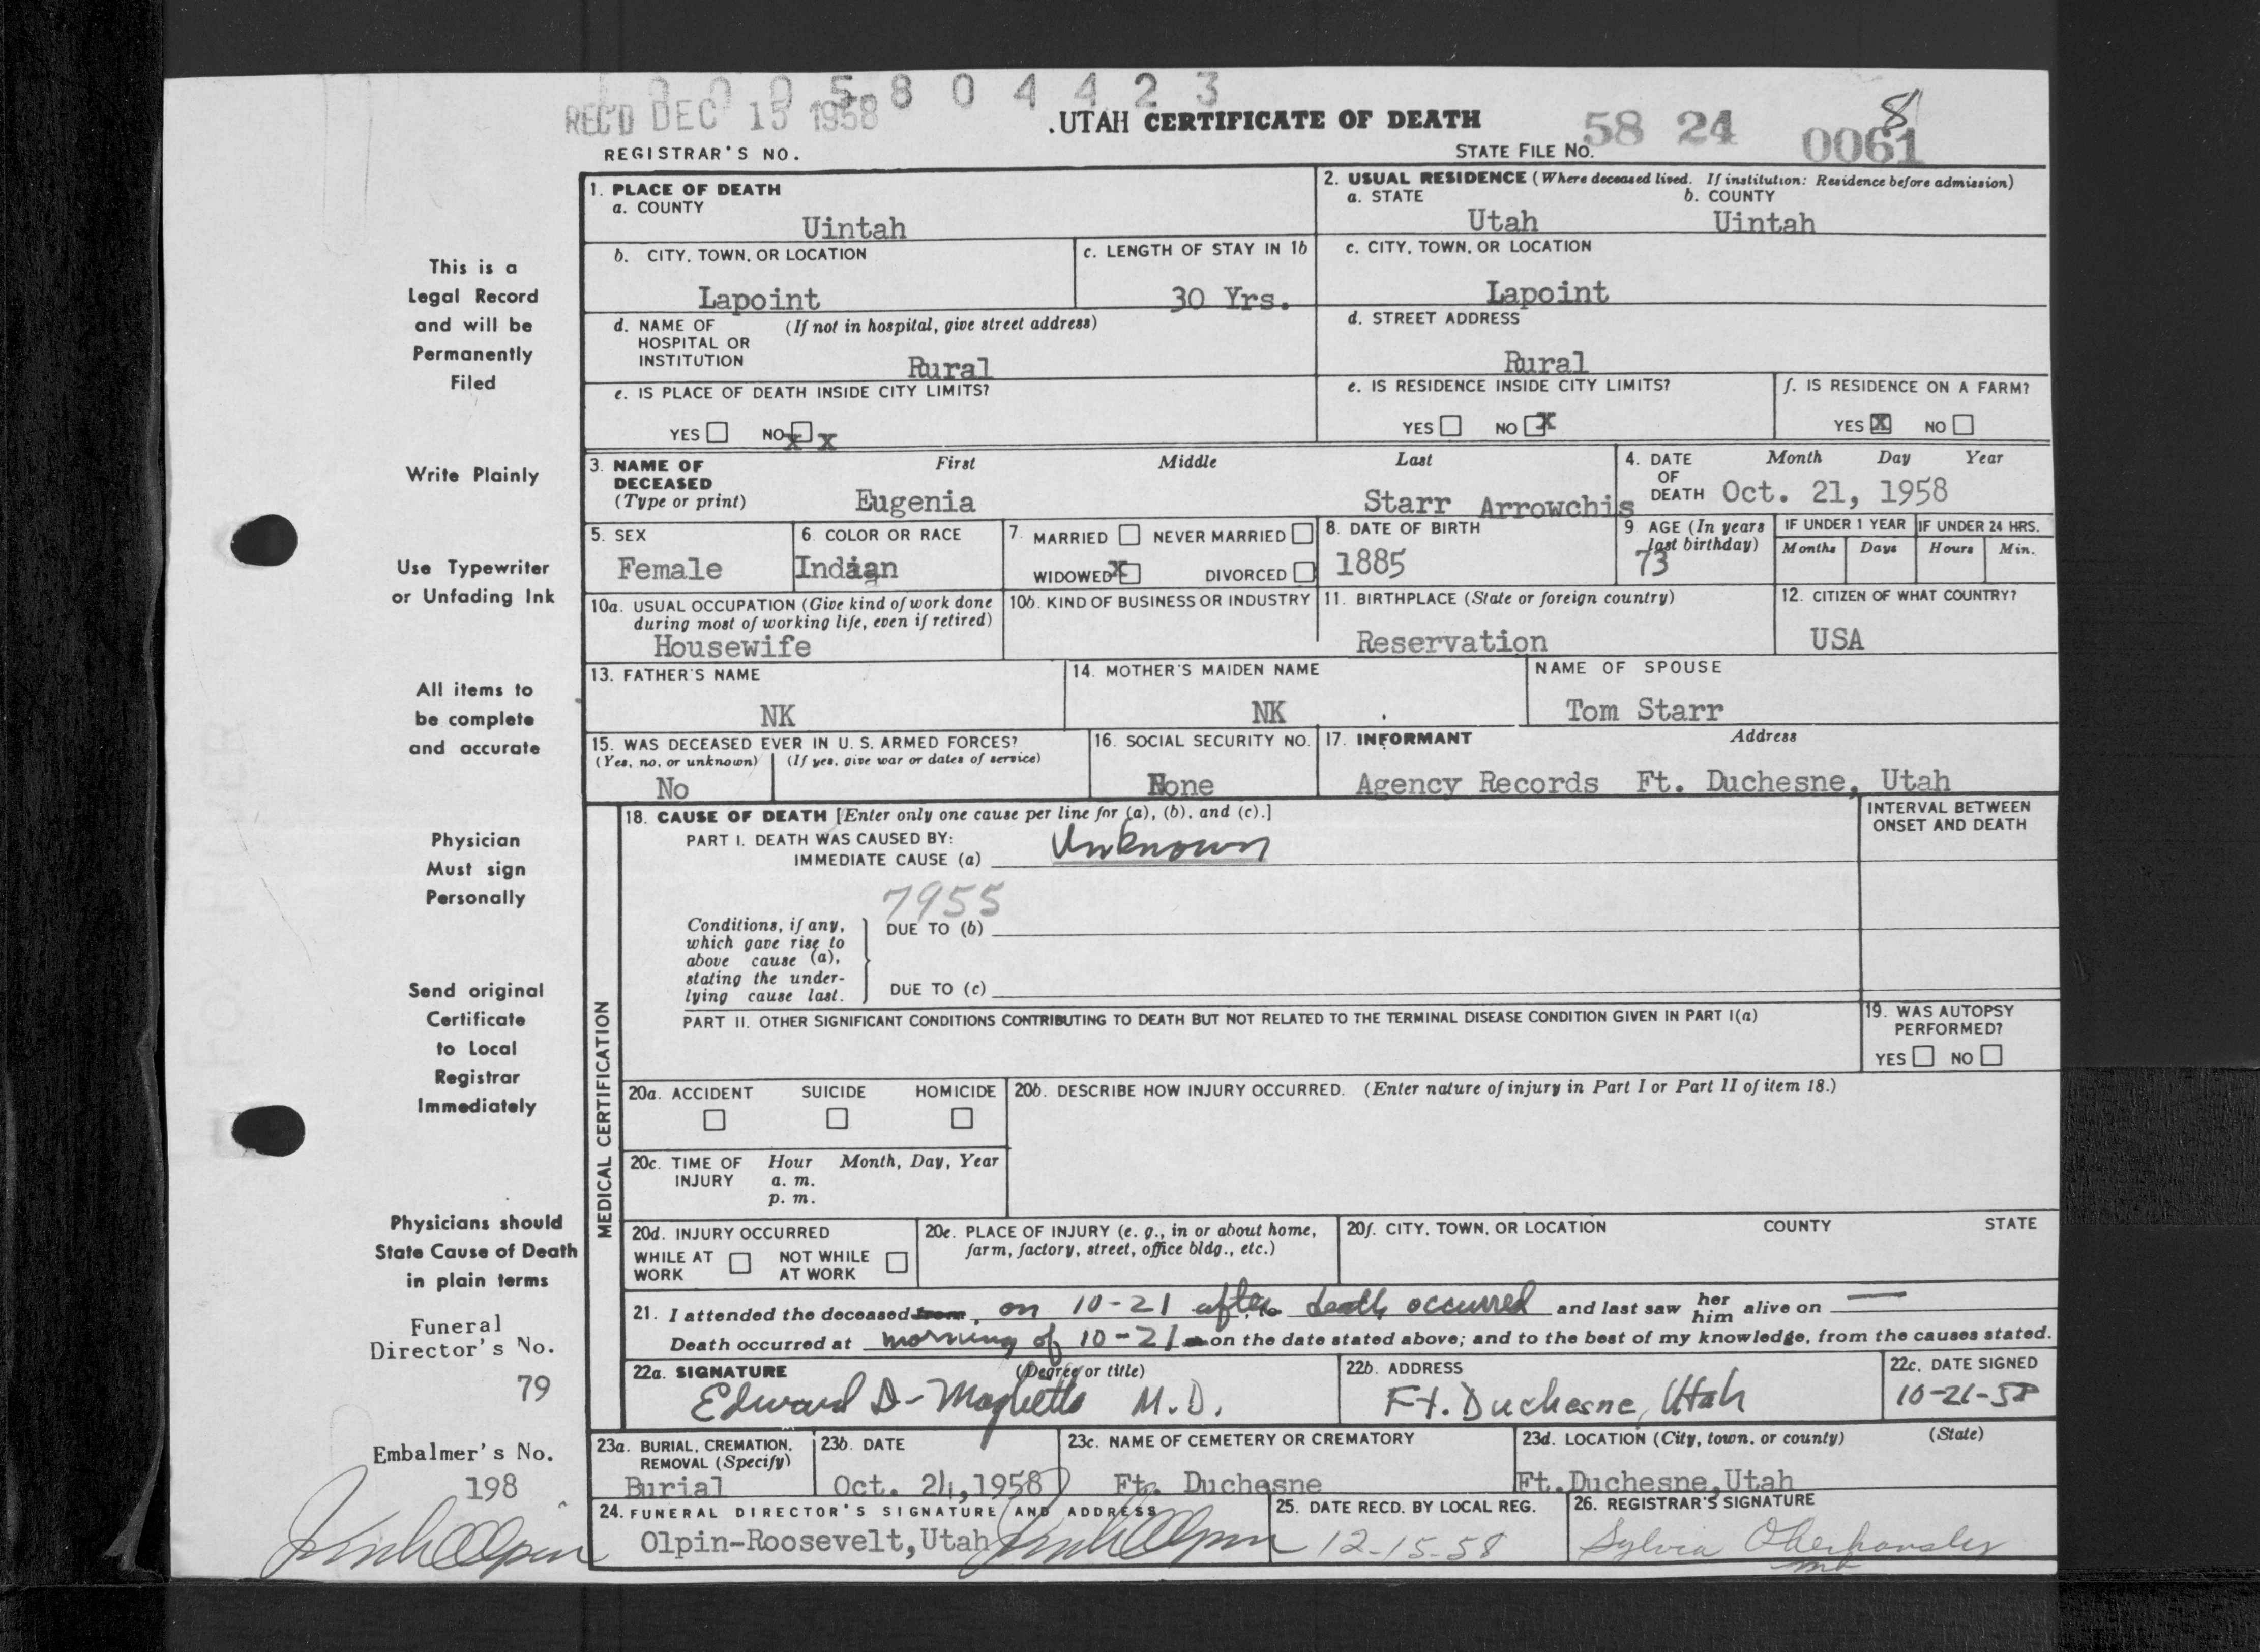 1 0 0 0 5 8 0 4 4 2 3
REC'D DEC 15 1958
.UTAH CERTIFICATE OF DEATH
58 24 0061 8
REGISTRAR'S NO.
STATE FILE NO.
This is a
Legal Record
and will be
Permanently
Filed
Write Plainly
Use Typewriter
or Unfading Ink
All items to
be complete
and accurate
Physician
Must sign
Personally
Send original
Certificate
to Local
Registrar
Immediately
Physicians should
State Cause of Death
in plain terms
Funeral
Director's No.
79
Embalmer's No.
198
1. PLACE OF DEATH
a. COUNTY
Uintah
2. USUAL RESIDENCE (Where deceased lived. If institution: Residence before admission)
a. STATE b. COUNTY
Utah Uintah
b. CITY, TOWN, OR LOCATION
Lapoint
c. LENGTH OF STAY IN 1b
30 Yrs.
c. CITY, TOWN, OR LOCATION
Lapoint
d. NAME OF (If not in hospital, give street address)
HOSPITAL OR
INSTITUTION
Rural
d. STREET ADDRESS
Rural
e. IS PLACE OF DEATH INSIDE CITY LIMITS?
YES NO x x
e. IS RESIDENCE INSIDE CITY LIMITS?
YES NO X
f. IS RESIDENCE ON A FARM?
YES X NO
3. NAME OF First Middle Last
DECEASED
(Type or print) Eugenia Starr Arrowchis
4. DATE Month Day Year
OF
DEATH Oct. 21, 1958
5. SEX
Female
6. COLOR OR RACE
Indian
7. MARRIED NEVER MARRIED
WIDOWED X DIVORCED
8. DATE OF BIRTH
1885
9 AGE (In years
last birthday)
73
IF UNDER 1 YEAR IF UNDER 24 HRS.
Months Days Hours Min.
10a. USUAL OCCUPATION (Give kind of work done
during most of working life, even if retired)
Housewife
10b. KIND OF BUSINESS OR INDUSTRY
11. BIRTHPLACE (State or foreign country)
Reservation
12. CITIZEN OF WHAT COUNTRY?
USA
13. FATHER'S NAME
NK
14. MOTHER'S MAIDEN NAME
NK
NAME OF SPOUSE
Tom Starr
15. WAS DECEASED EVER IN U. S. ARMED FORCES?
(Yes, no, or unknown) (If yes, give war or dates of service)
No
16. SOCIAL SECURITY NO.
None
17. INFORMANT Address
Agency Records Ft. Duchesne, Utah
MEDICAL CERTIFICATION
18. CAUSE OF DEATH [Enter only one cause per line for (a), (b), and (c).]
PART I. DEATH WAS CAUSED BY:
IMMEDIATE CAUSE (a) Unknown
INTERVAL BETWEEN
ONSET AND DEATH
7955
Conditions, if any,
which gave rise to
above cause (a),
stating the under-
lying cause last.
DUE TO (b)
DUE TO (c)
PART II. OTHER SIGNIFICANT CONDITIONS CONTRIBUTING TO DEATH BUT NOT RELATED TO THE TERMINAL DISEASE CONDITION GIVEN IN PART I(a)
19. WAS AUTOPSY
PERFORMED?
YES NO
20a. ACCIDENT SUICIDE HOMICIDE
20b. DESCRIBE HOW INJURY OCCURRED. (Enter nature of injury in Part I or Part II of item 18.)
20c. TIME OF Hour Month, Day, Year
INJURY a. m.
p. m.
20d. INJURY OCCURRED
WHILE AT NOT WHILE
WORK AT WORK
20e. PLACE OF INJURY (e. g., in or about home,
farm, factory, street, office bldg., etc.)
20f. CITY, TOWN, OR LOCATION COUNTY STATE
21. I attended the deceased from, on 10-21 after to death occurred and last saw her him alive on —
Death occurred at morning of 10-21 on the date stated above; and to the best of my knowledge, from the causes stated.
22a. SIGNATURE (Degree or title)
Edward D- M.D.
22b. ADDRESS
Ft. Duchesne, Utah
22c. DATE SIGNED
10-21-58
23a. BURIAL, CREMATION,
REMOVAL (Specify)
Burial
23b. DATE
Oct. 24,1958
23c. NAME OF CEMETERY OR CREMATORY
Ft. Duchesne
23d. LOCATION (City, town, or county) (State)
Ft.Duchesne,Utah
24. FUNERAL DIRECTOR'S SIGNATURE AND ADDRESS
Olpin-Roosevelt,Utah
25. DATE RECD. BY LOCAL REG.
12-15-58
26. REGISTRAR'S SIGNATURE
Sylvia